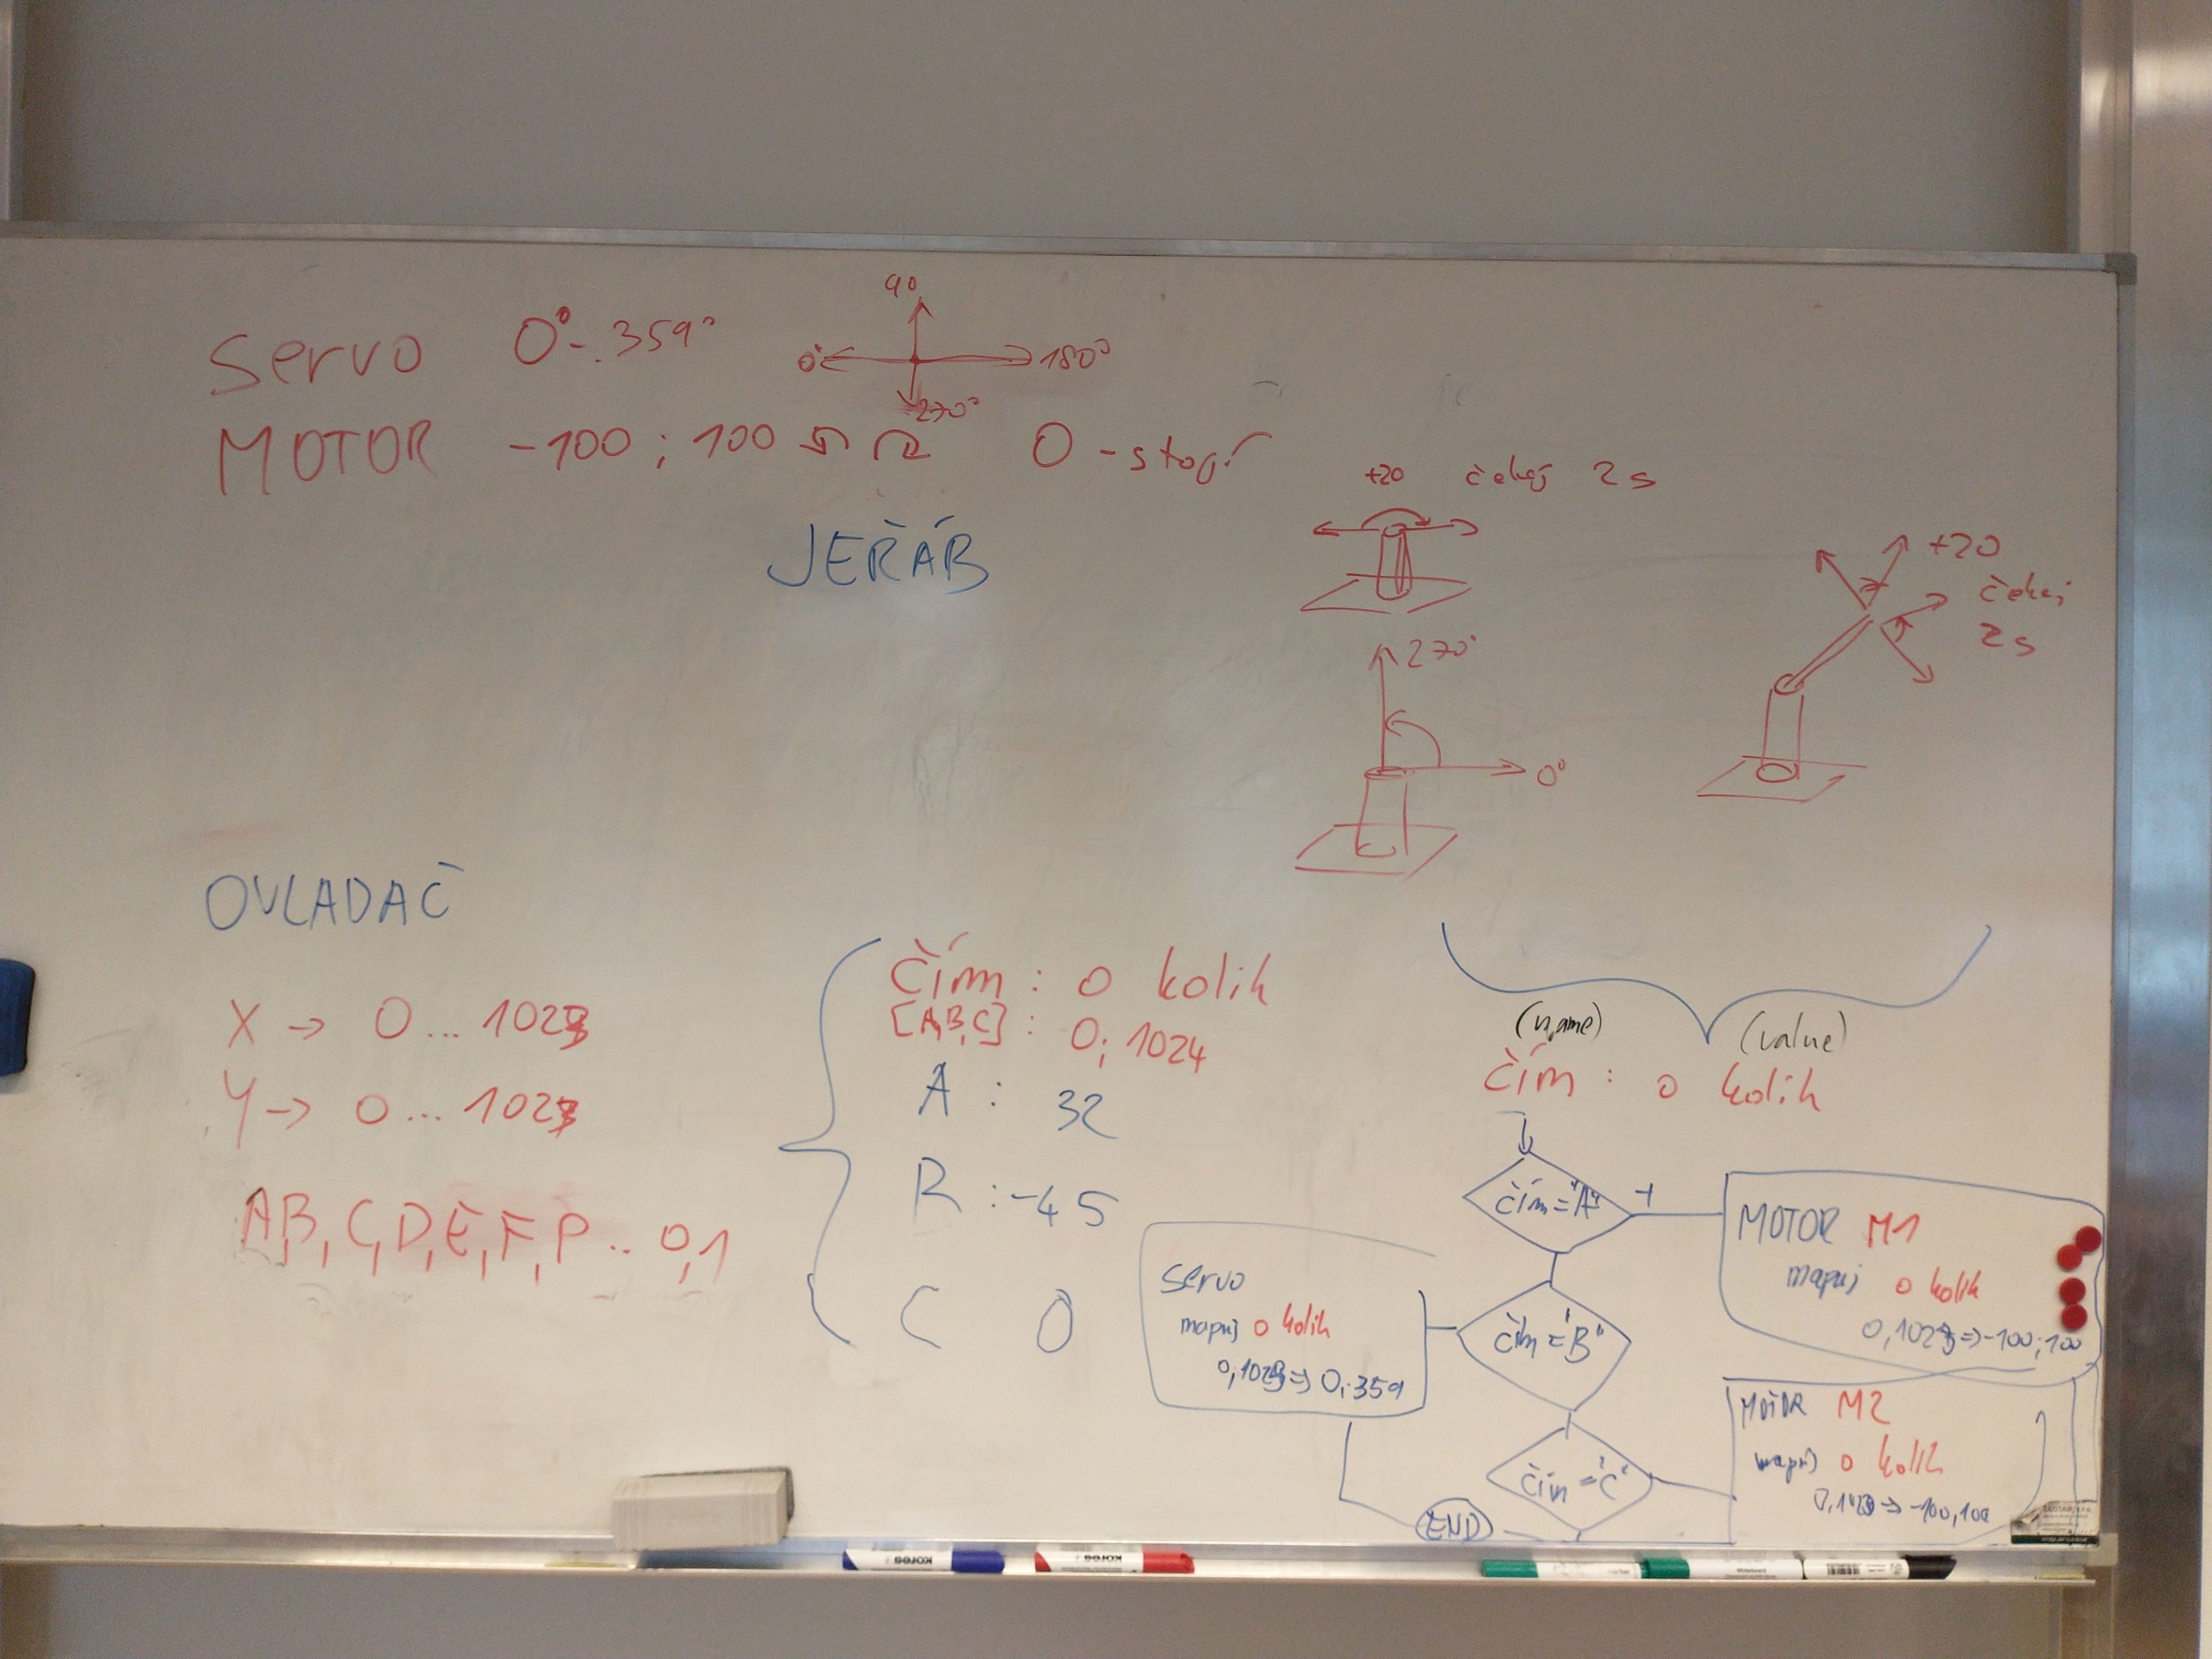 servo 0°-.359°
90
0° 180°
270°
MOTOR -100 ; 100 0 - stop!
JEŘÁB
+20 čekej 2s
+20
čekej
2s
270°
0°
OVLADAČ
X → 0 ... 1023
Y → 0 ... 1023
A,B, C, D, E, F, P .. 0,1
čím : o kolik
[A,B,C] : 0; 1024
A : 32
R : -45
C 0
(name) (value)
čím : o kolik
čím="A" +
MOTOR M1
mapuj o kolik
0,1023 => -100; 100
čím="B"
servo
mapuj o kolik
0,1023 => 0; 359
čím="C"
MOTOR M2
mapuj o kolik
0,1023 => -100, 100
END
kores
kores